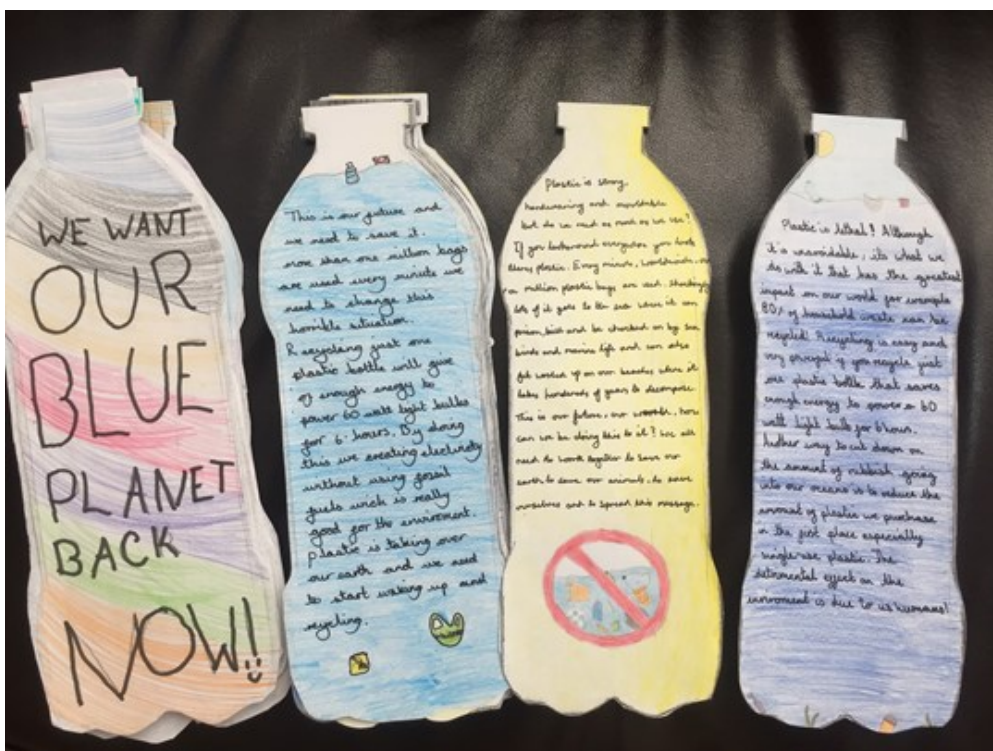 WE WANT
OUR
BLUE
PLANET
BACK
NOW!!
This is our future and
we need to save it.
more than one million bags
are used every minute we
need to change this
horrible situation.
Recycling just one
plastic bottle will give
of enough energy to
power 60 watt light bulbs
for 6 hours. By doing
this we creating electricity
without using fossil
fuels wich is really
good for the enviroment.
plastic is taking over
our earth and we need
to start waking up and
recycling.
Plastic is strong,
hardwearing and mouldable
but do we need as much as we use?
If you look around everywhere you look
theres plastic. Every minute, worldwide,
a million plastic bags are used. Shockingly
lots of it goes to the sea where it can
poison, kill and be choked on by sea
birds and marine life and can also
get washed up on our beaches where it
takes hundreds of years to decompose.
This is our future, our world, how
can we be doing this to it? We all
need to work together to save our
earth to save our animals to save
ourselves and to spread this message.
Plastic is lethal! Although
it's unavoidable, its what we
do with it that has the greatest
impact on our world for example
80% of household waste can be
recycled! Recycling is easy and
very powerful if you recycle just
one plastic bottle that saves
enough energy to power a 60
watt light bulb for 6 hours.
way to cut down on
the amount of rubbish going
into our oceans is to reduce the
amount of plastic we purchase
in the first place especially
single-use plastic. The
detrimental effect on the
enviroment is due to us humans!